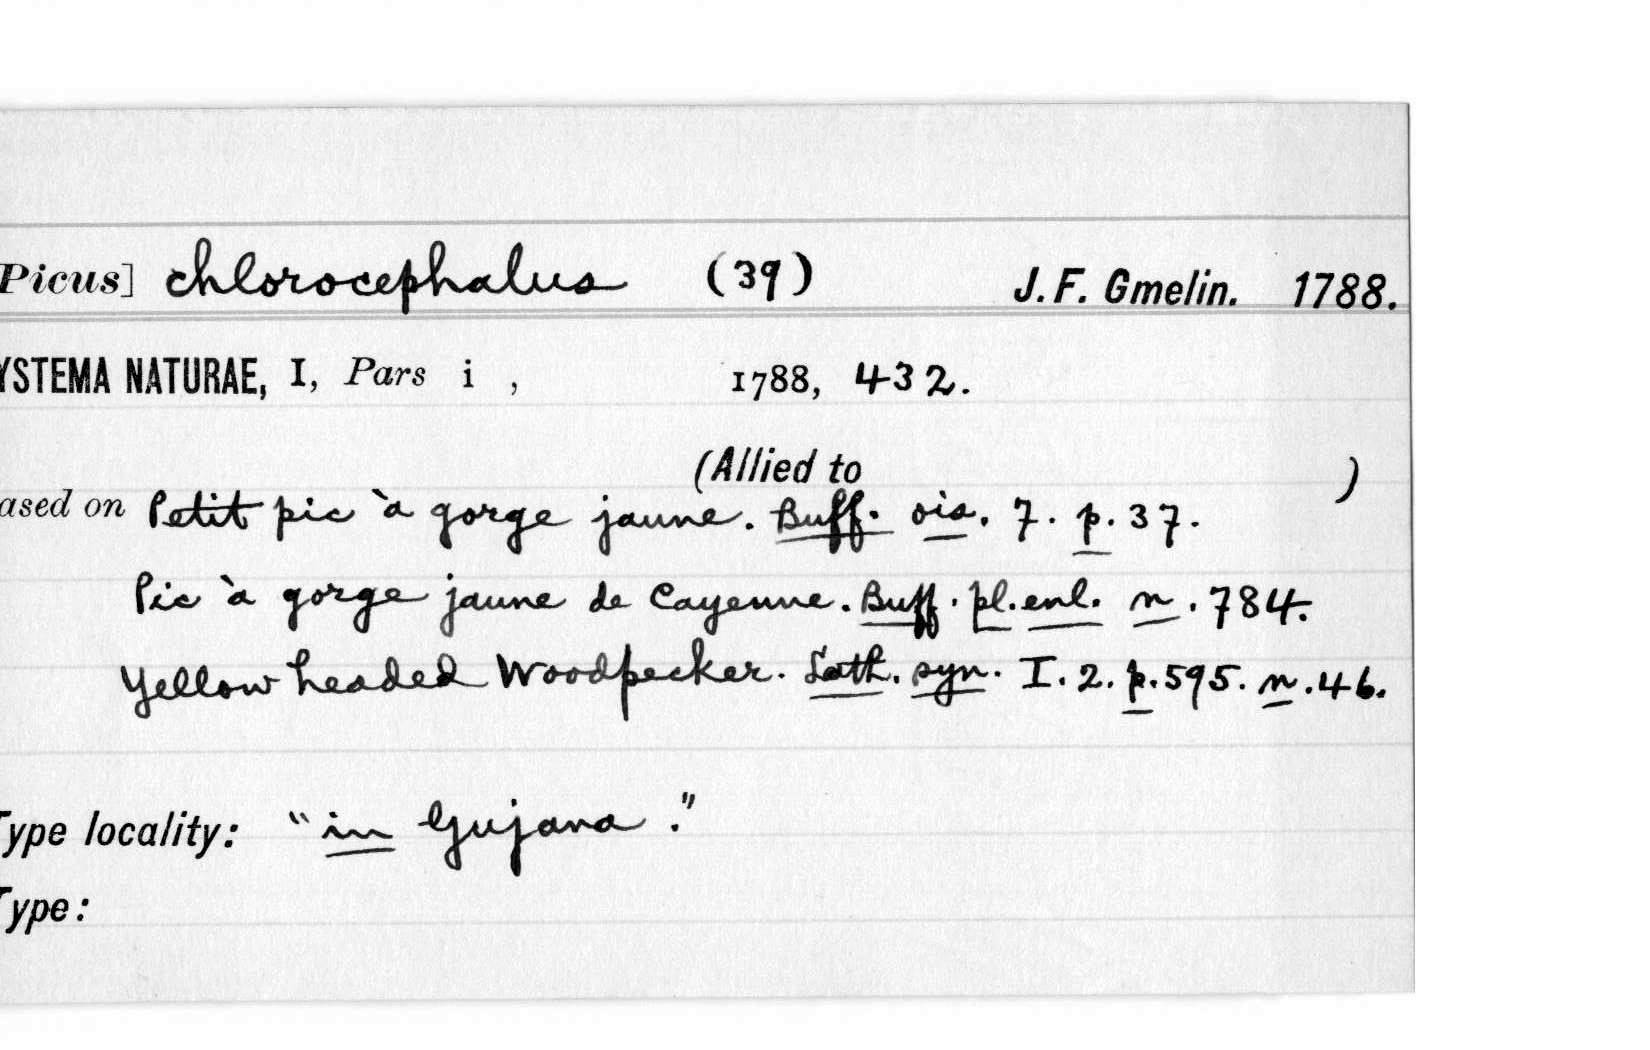 Picus] chlorocephalus (39) J. F. Gmelin. 1788.
YSTEMA NATURAE, I, Pars i , 1788, 432.
(Allied to )
ased on Petit pic à gorge jaune. Buff. ois. 7. p. 37.
Pic à gorge jaune de Cayenne. Buff. pl. enl. n. 784.
Yellow headed Woodpecker. Lath. syn. I. 2. p. 595. n. 46.
Type locality: "in Gujana."
Type: